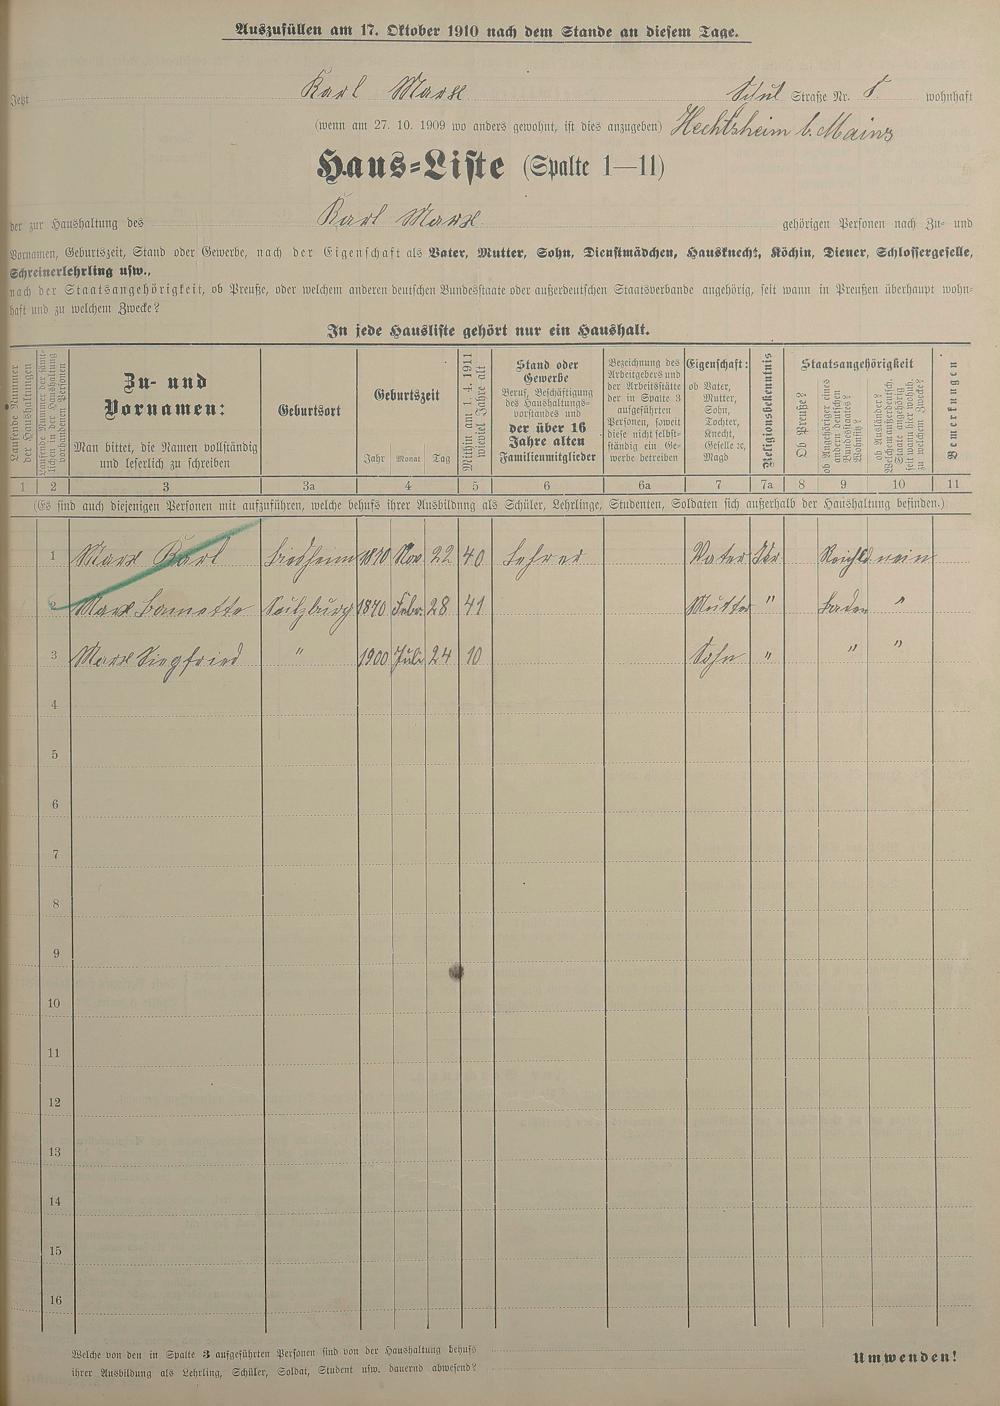 Auszufüllen am 17. Oktober 1910 nach dem Stande an diesem Tage.
Jetzt Karl Marx Schul Straße Nr. wohnhaft
(wenn am 27. 10. 1909 wo anders gewohnt, ist dies anzugeben) Hechtsheim b. Mainz
Haus-Liste (Spalte 1—11)
der zur Haushaltung des Karl Marx gehörigen Personen nach Zu- und
Vornamen, Geburtszeit, Stand oder Gewerbe, nach der Eigenschaft als Vater, Mutter, Sohn, Dienstmädchen, Hausknecht, Köchin, Diener, Schlossergeselle,
Schreinerlehrling usw.,
nach der Staatsangehörigkeit, ob Preuße, oder welchem anderen deutschen Bundesstaate oder außerdeutschen Staatsverbande angehörig, seit wann in Preußen überhaupt wohn-
haft und zu welchem Zwecke?
In jede Hausliste gehört nur ein Haushalt.
Laufende Nummer
der Haushaltungen
Laufende Nummer der sämt-
lichen in der Haushaltung
vorhandenen Personen
Zu- und
Vornamen:
Man bittet, die Namen vollständig
und leserlich zu schreiben
Geburtsort
Geburtszeit
Jahr Monat Tag
Mithin am 1. 4. 1911
wieviel Jahre alt
Stand oder
Gewerbe
Beruf, Beschäftigung
des Haushaltungs-
vorstandes und
der über 16
Jahre alten
Familienmitglieder
Bezeichnung des
Arbeitgebers und
der Arbeitsstätte
der in Spalte 3
aufgeführten
Personen, soweit
diese nicht selbst-
ständig ein Ge-
werbe betreiben
Eigenschaft:
ob Vater,
Mutter,
Sohn,
Tochter,
Knecht,
Geselle ꝛc,
Magd
Religionsbekenntnis
Staatsangehörigkeit
Ob Preuße?
ob Angehöriger eines
andern deutschen
Bundesstaates?
Wohnsitz?
ob Ausländer?
Welchem außerdeutsch.
Staate angehörig
seit wann hier wohnh.
zu welchem Zwecke?
Bemerkungen
1 2 3 3a 4 5 6 6a 7 7a 8 9 10 11
(Es sind auch diejenigen Personen mit aufzuführen, welche behufs ihrer Ausbildung als Schüler, Lehrlinge, Studenten, Soldaten sich außerhalb der Haushaltung befinden.)
1 Marx Karl 1870 Nov. 22 40 Lehrer Vater Isr Reichsl nein
2 Marx Sulzburg 1870 Febr. 28 41 Mutter " Baden "
3 Marx Siegfried " 1900 Juli 24 10 Sohn " " "
4
5
6
7
8
9
10
11
12
13
14
15
16
Welche von den in Spalte 3 aufgeführten Personen sind von der Haushaltung behufs
ihrer Ausbildung als Lehrling, Schüler, Soldat, Student usw. dauernd abwesend?
Umwenden!